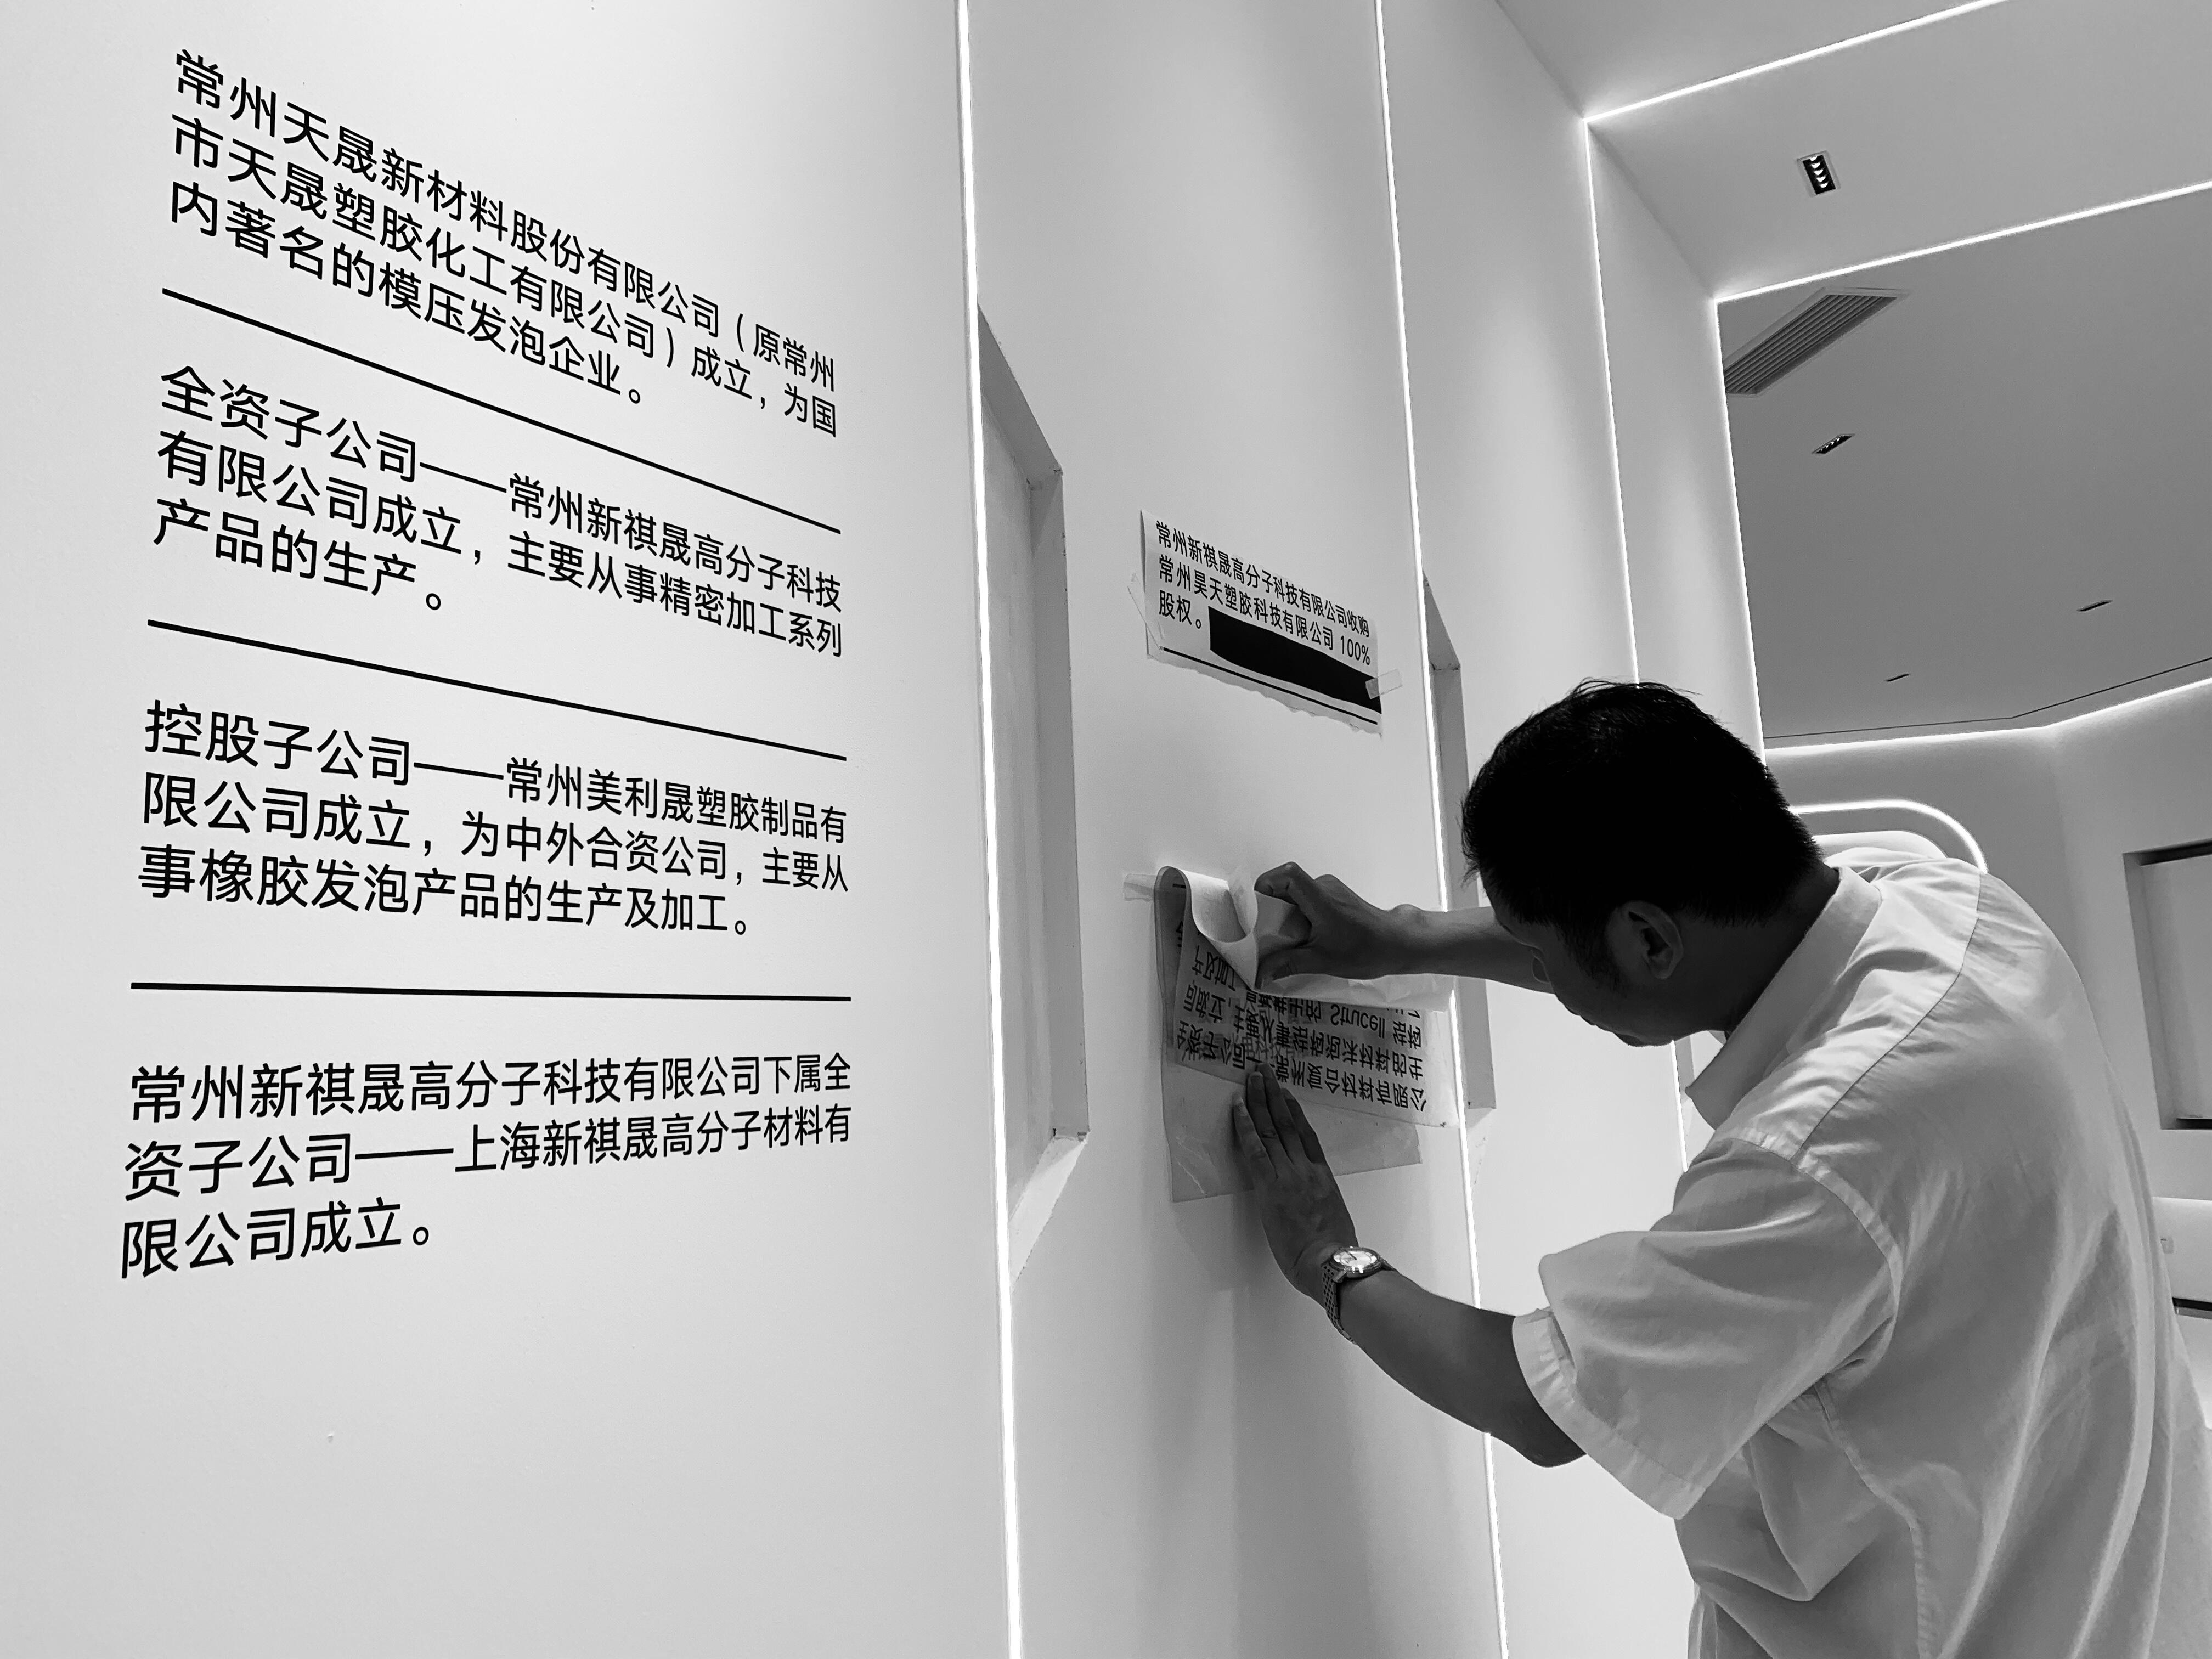 常州天晟新材料股份有限公司（原常州
市天晟塑胶化工有限公司）成立，为国
内著名的模压发泡企业。
全资子公司——常州新祺晟高分子科技
有限公司成立，主要从事精密加工系列
产品的生产。
控股子公司——常州美利晟塑胶制品有
限公司成立，为中外合资公司，主要从
事橡胶发泡产品的生产及加工。
常州新祺晟高分子科技有限公司下属全
资子公司——上海新祺晟高分子材料有
限公司成立。
常州新祺晟高分子科技有限公司收购
常州昊天塑胶科技有限公司 100%
股权。
全资子公司——常州复合材料有限公
司成立，主要从事结构泡沫材料的生
产及加工
的 Strucell 结构